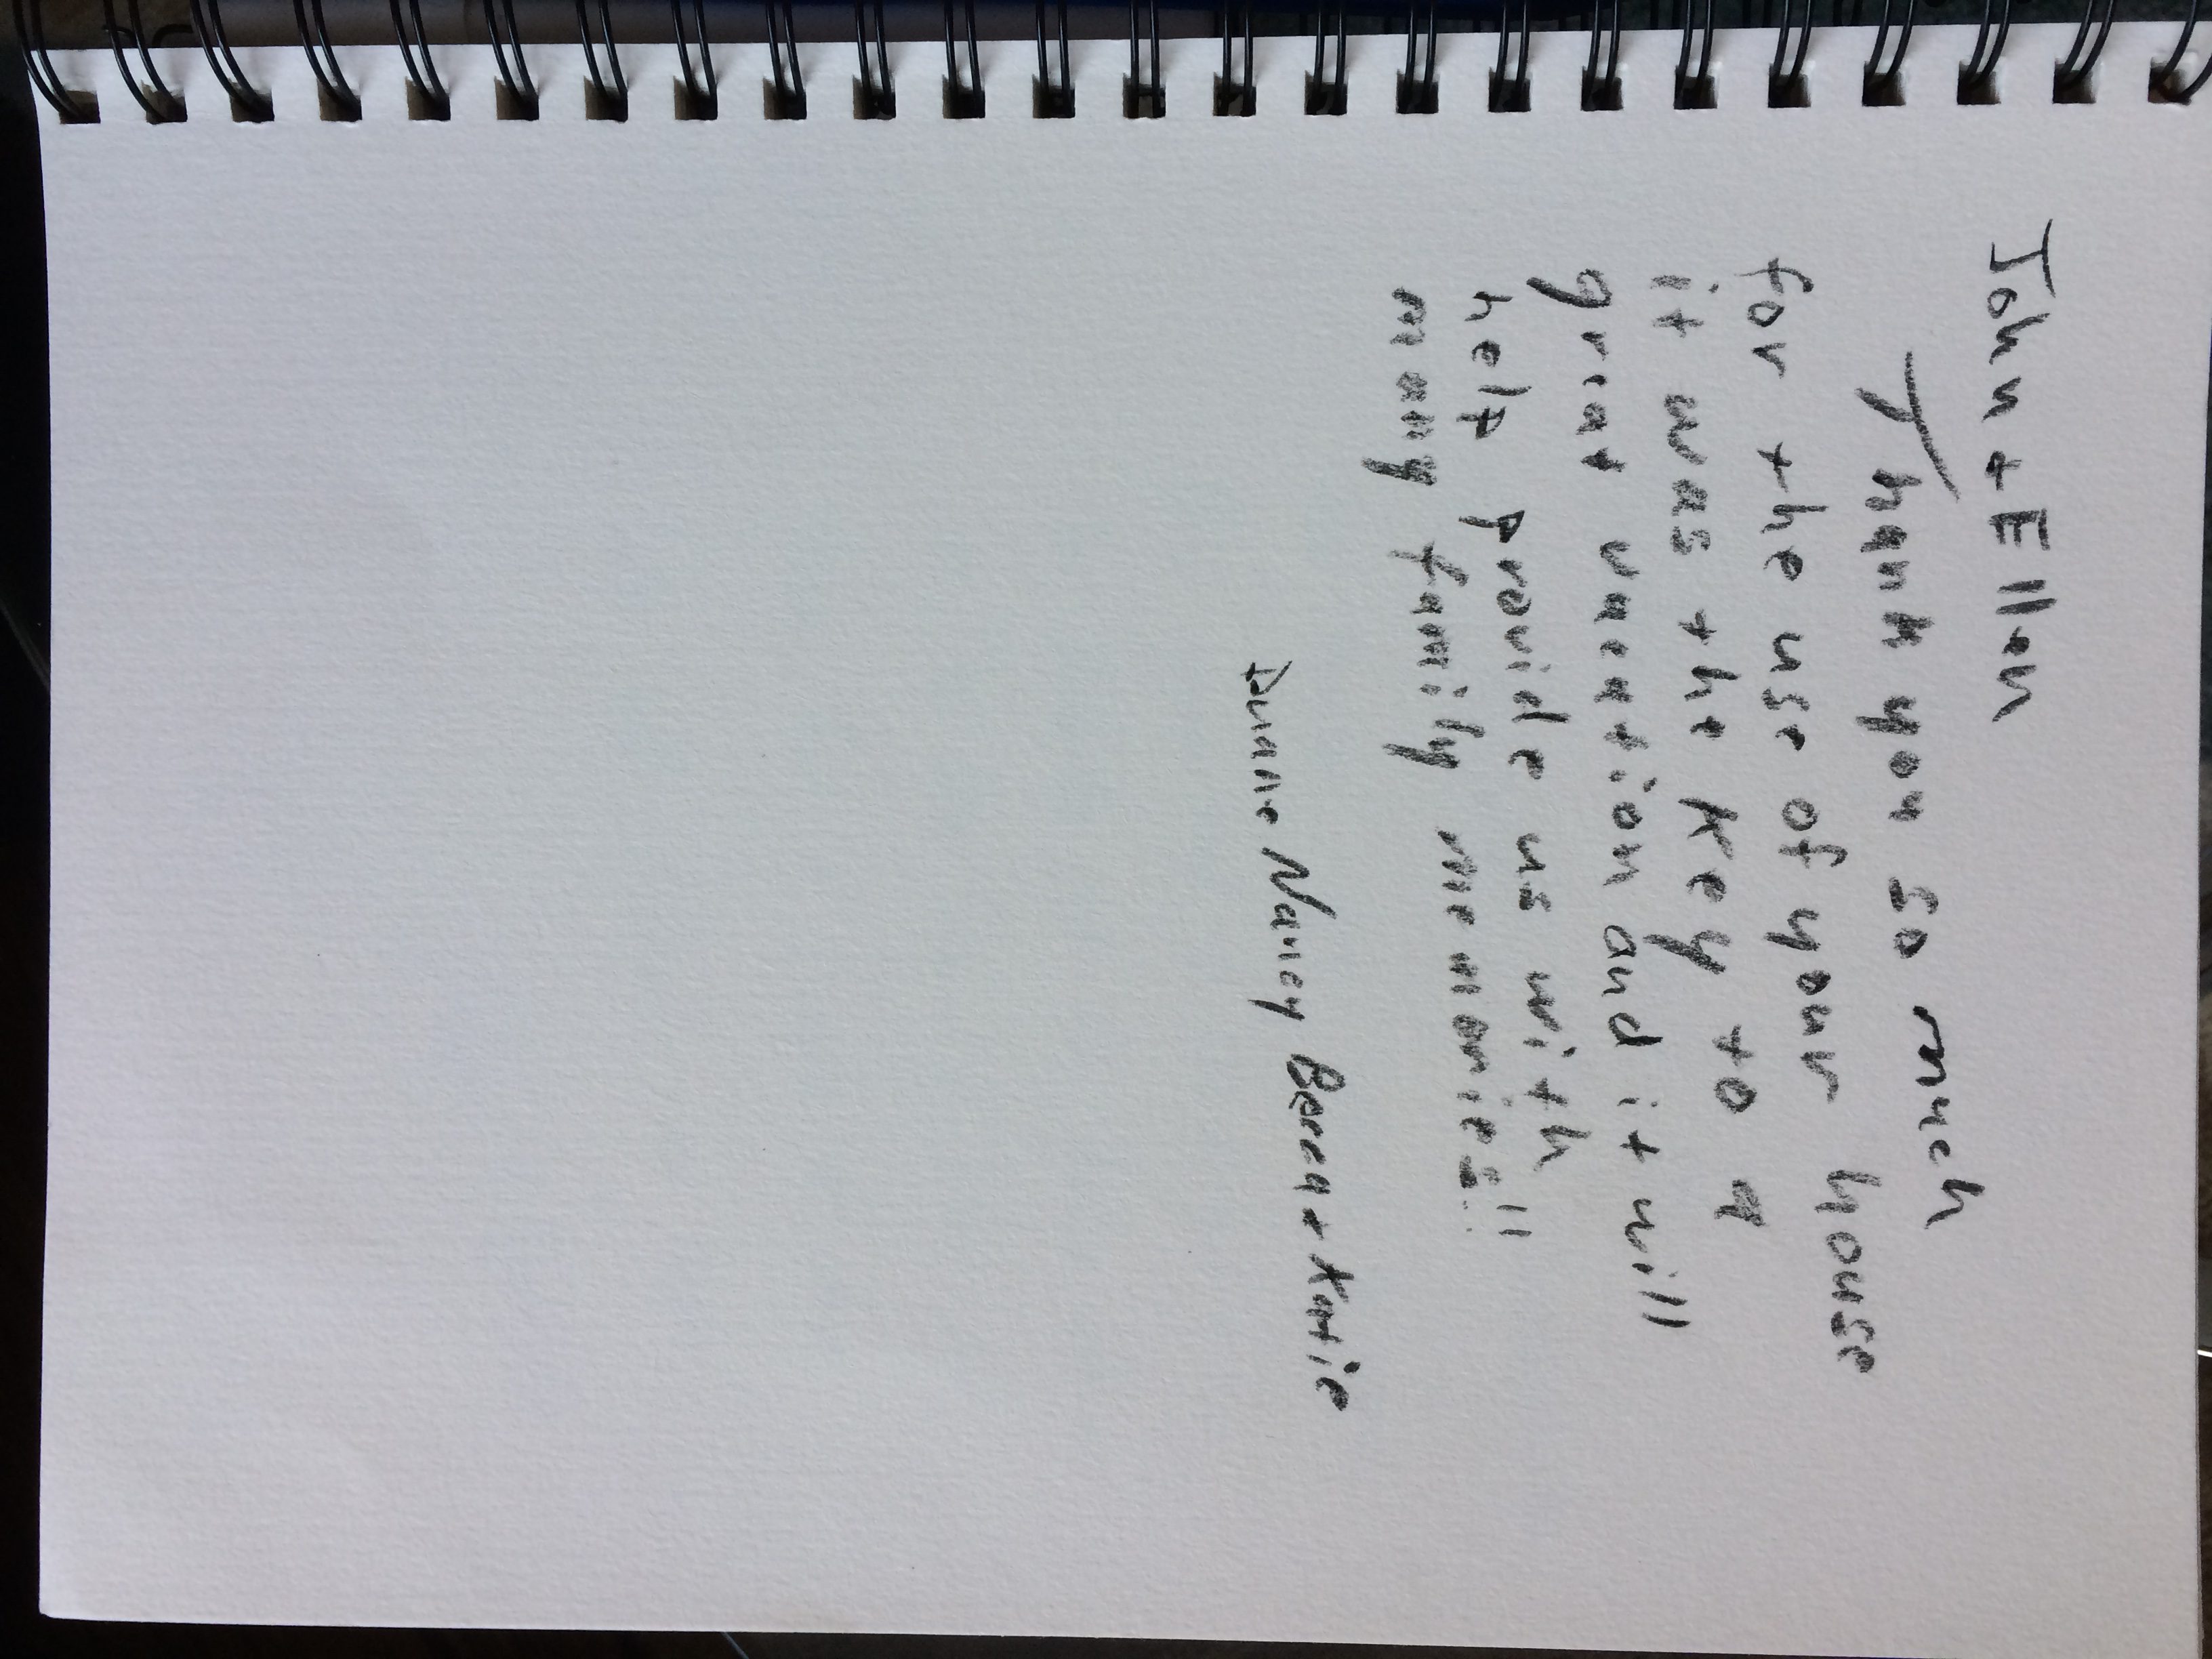 John + Ellen
Thank you so much
for the use of your house
it was the key to a
great vacation and it will
help provide us with
many family memories!!
Duane Nancy + Katie